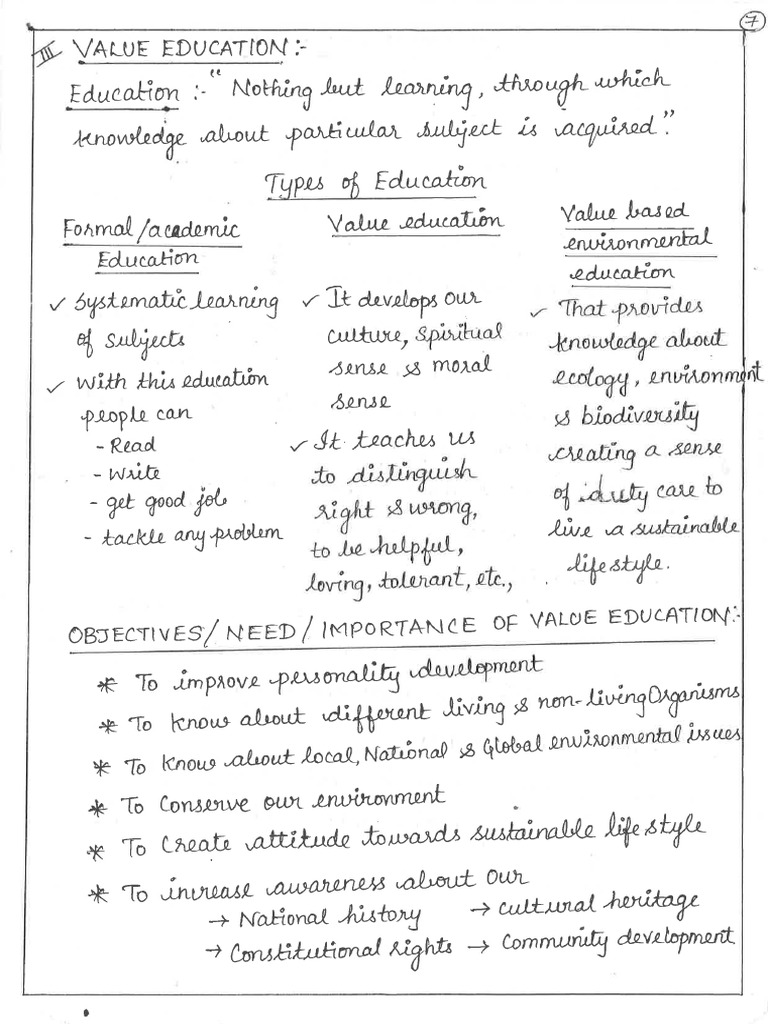 7
III VALUE EDUCATION:-
Education :- "Nothing but learning, through which
knowledge about particular subject is acquired".
Types of Education
Formal/academic
Education
✓ Systematic learning
of subjects
✓ With this education
people can
- Read
- Write
- get good job
- tackle any problem
Value education
✓ It develops our
culture, spiritual
sense & moral
sense
✓ It teaches us
to distinguish
right & wrong,
to be helpful,
loving, tolerant, etc.,
Value based
environmental
education
✓ That provides
knowledge about
ecology, environment
& biodiversity
creating a sense
of duty care to
live a sustainable
lifestyle.
OBJECTIVES/NEED/IMPORTANCE OF VALUE EDUCATION:-
* To improve personality development
* To know about different living & non-living Organisms
* To know about local, National & Global environmental issues
* To Conserve our environment
* To Create attitude towards sustainable life style
* To increase awareness about our
→ National history → cultural heritage
→ Constitutional rights → Community development